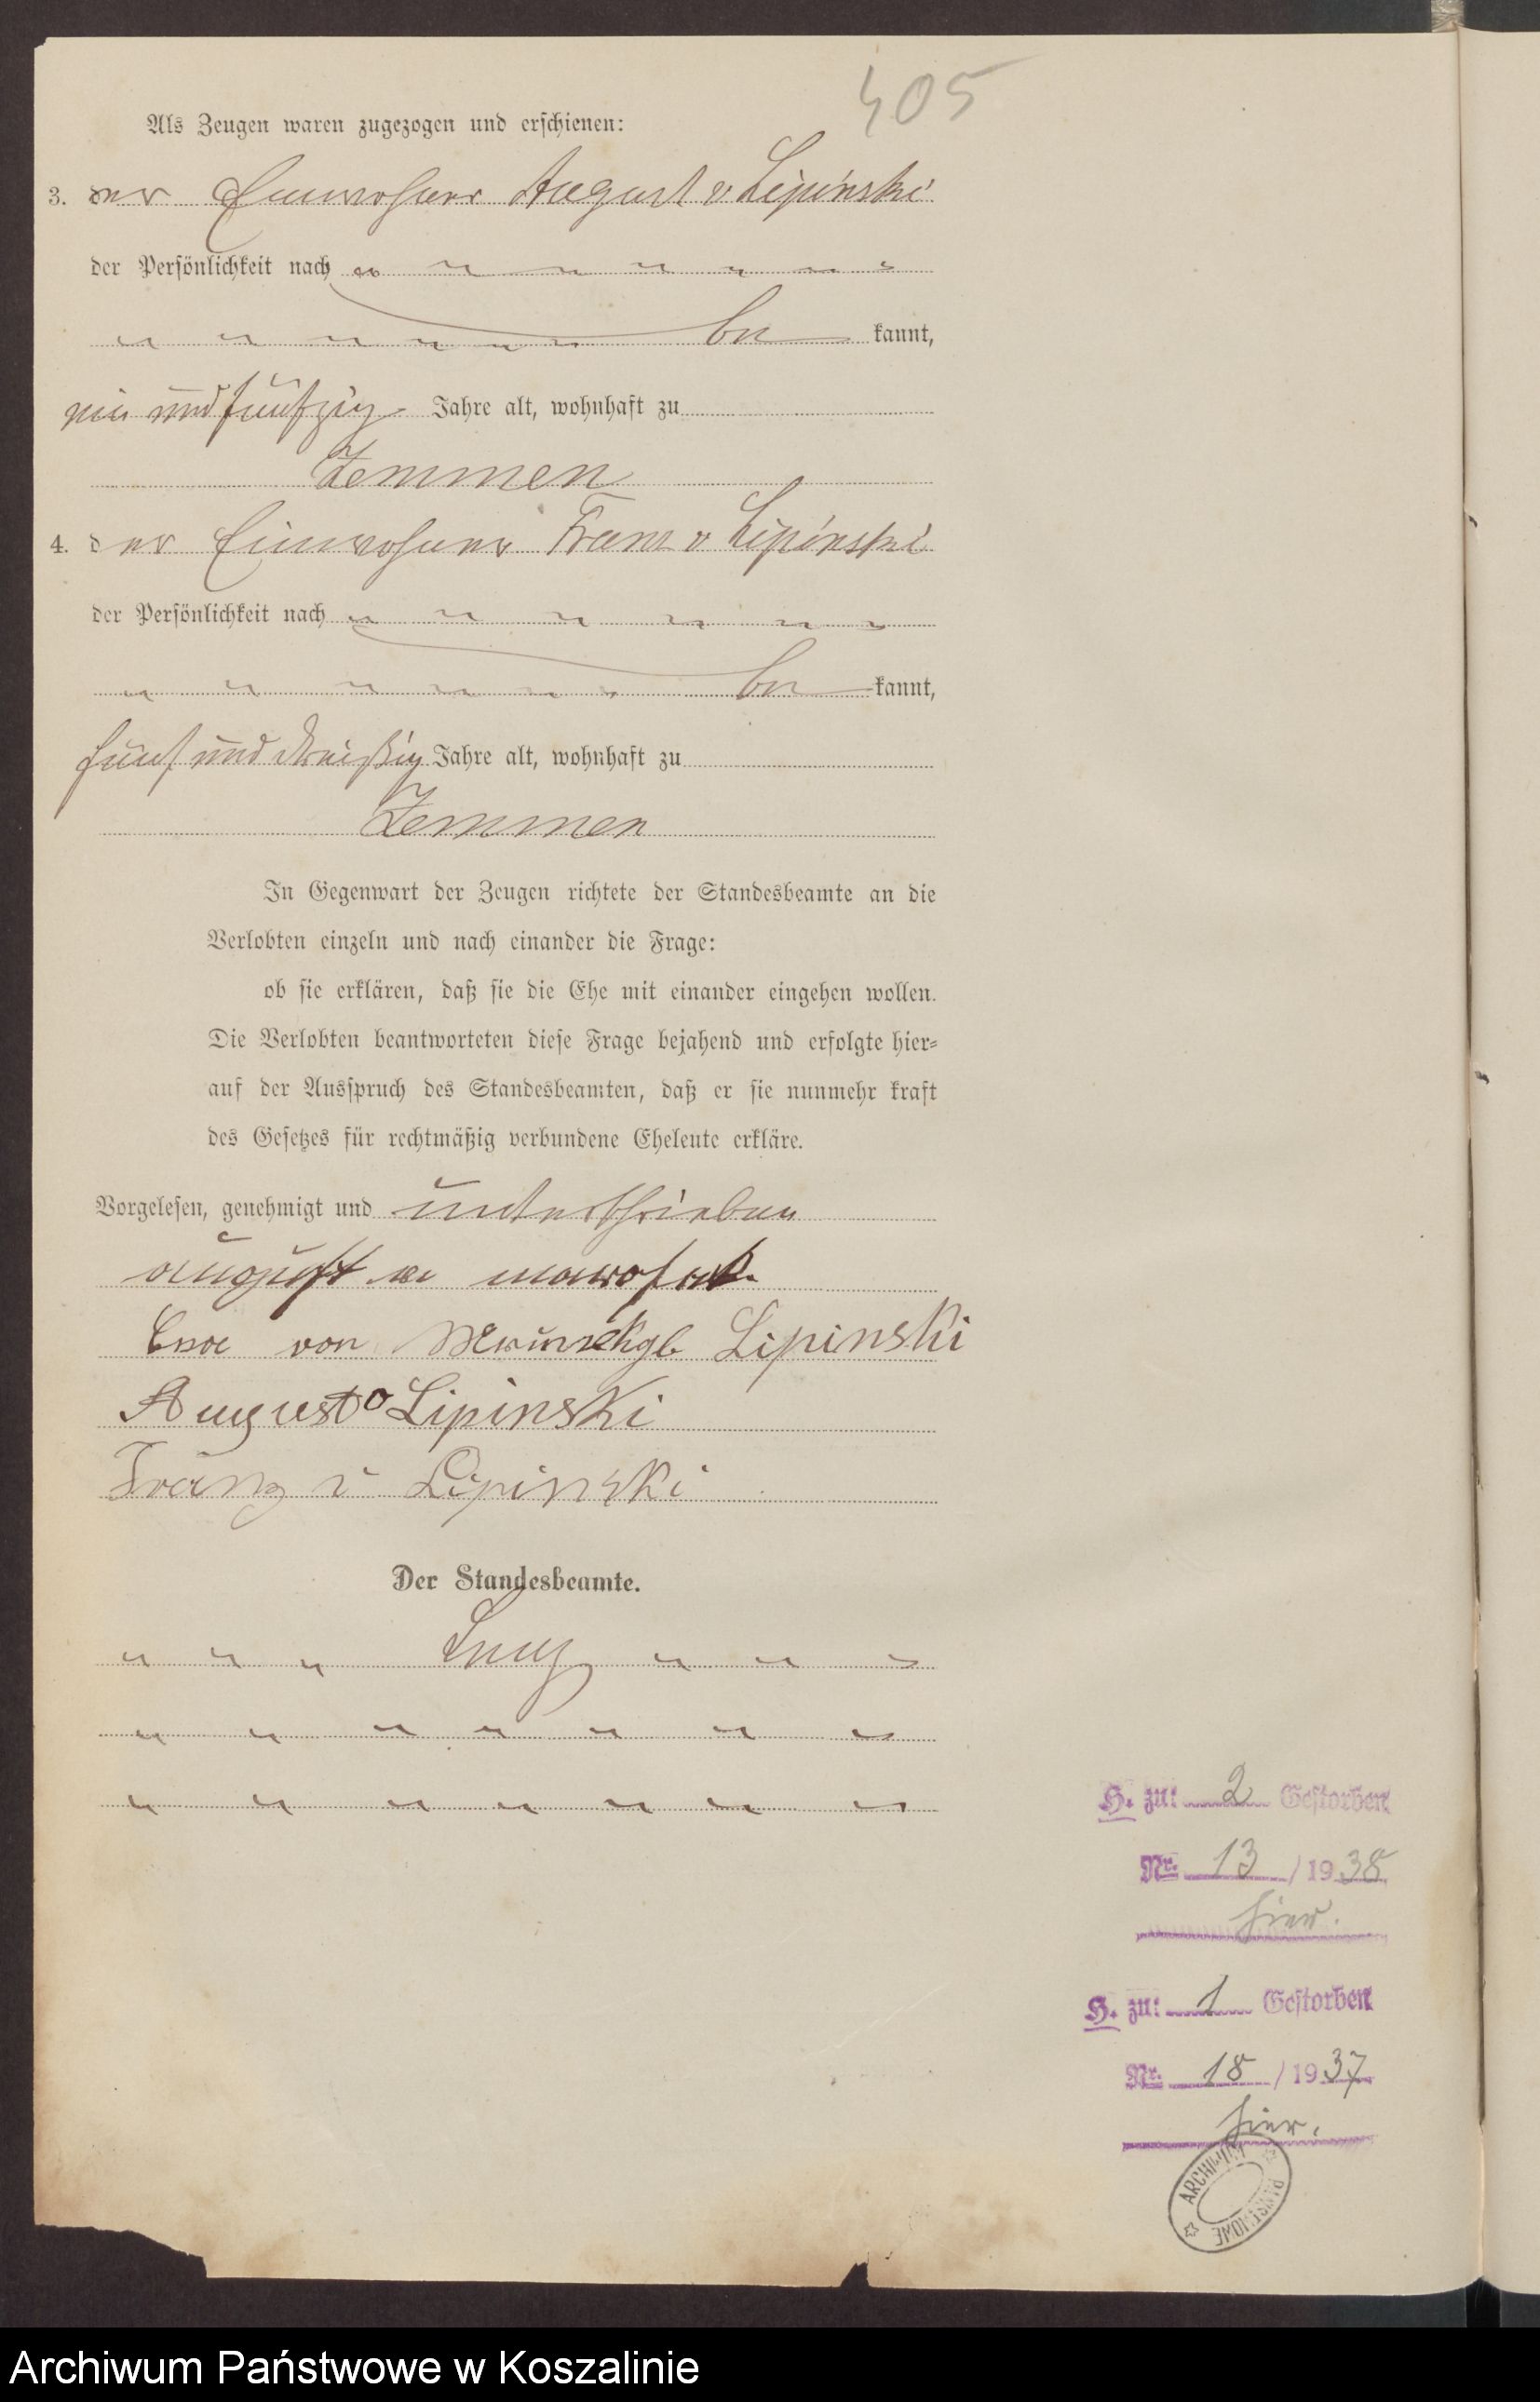 405
Als Zeugen waren zugezogen und erschienen:
3. der Einwohner August v Lipinski
der Persönlichkeit nach
be kannt,
ein und fünfzig Jahre alt, wohnhaft zu
Zemmen
4. der Einwohner Franz v Lipinski
der Persönlichkeit nach
be kannt,
fünf und dreißig Jahre alt, wohnhaft zu
Zemmen
In Gegenwart der Zeugen richtete der Standesbeamte an die
Verlobten einzeln und nach einander die Frage:
ob sie erklären, daß sie die Ehe mit einander eingehen wollen.
Die Verlobten beantworteten diese Frage bejahend und erfolgte hier-
auf der Ausspruch des Standesbeamten, daß er sie nunmehr kraft
des Gesetzes für rechtmäßig verbundene Eheleute erkläre.
Vorgelesen, genehmigt und unterschrieben
August
von Lipinski
August v Lipinski
Franz v Lipinski
Der Standesbeamte.
H. zu: 2 Gestorben
Nr. 13 / 1938
hier.
H. zu: 1 Gestorben
Nr. 18 / 1937
hier.
ARCHIWUM PAŃSTWOWE
Archiwum Państwowe w Koszalinie